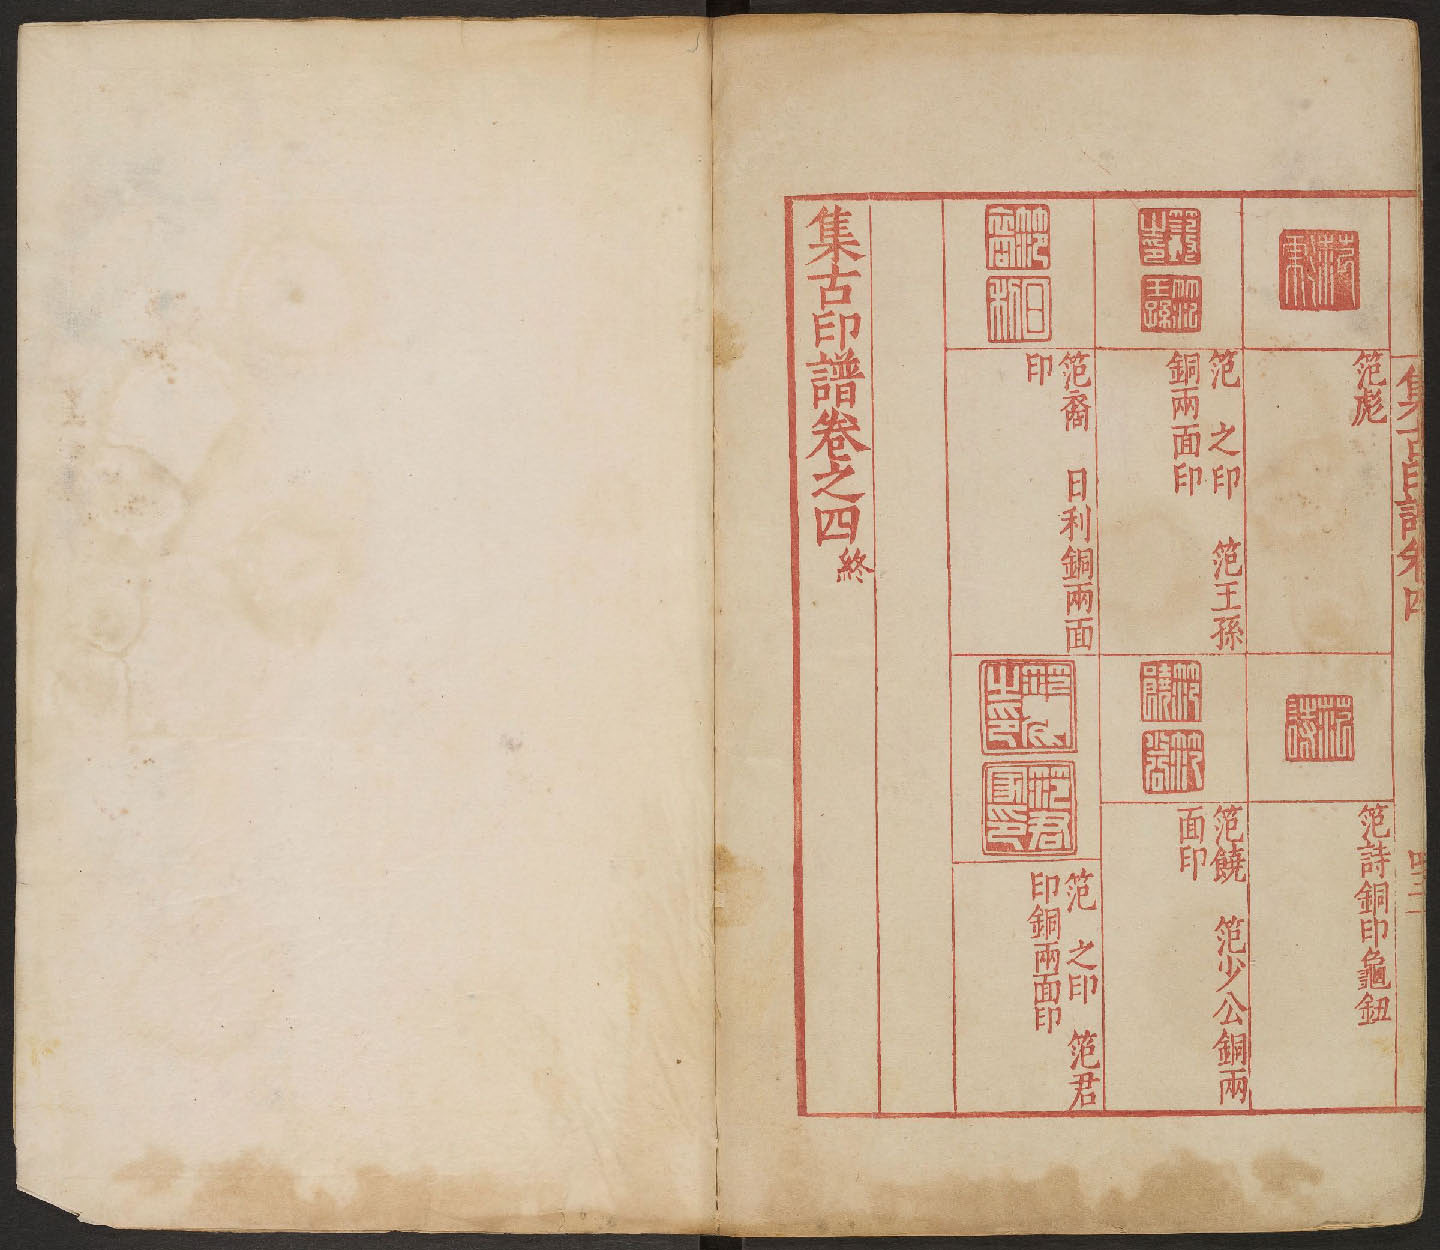 集古印譜卷四
四十一
笵彪
笵詩銅印龜鈕
笵　之印　笵王孫
銅兩面印
笵饒　笵少公銅兩
面印
笵裔　日利銅兩面
印
笵　之印　笵君
印銅兩面印
集古印譜卷之四終